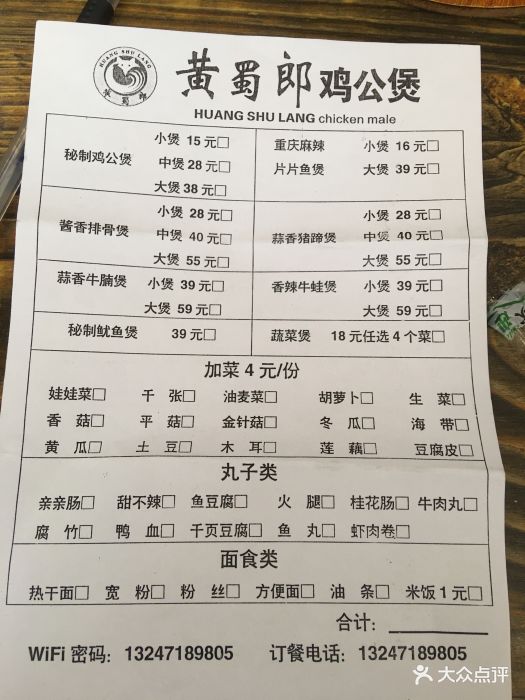 HUANG SHU LANG
黄蜀郎
黄蜀郎鸡公煲
HUANG SHU LANG chicken male
秘制鸡公煲
小煲 15 元□
中煲 28 元□
大煲 38 元□
重庆麻辣 小煲 16 元□
片片鱼煲 大煲 39 元□
酱香排骨煲
小煲 28 元□
中煲 40 元□
大煲 55 元□
蒜香猪蹄煲
小煲 28 元□
中煲 40 元□
大煲 55 元□
蒜香牛腩煲 小煲 39 元□
大煲 59 元□
香辣牛蛙煲 小煲 39 元□
大煲 59 元□
秘制鱿鱼煲 39 元□
蔬菜煲 18 元任选 4 个菜□
加菜 4 元/份
娃娃菜□ 千 张□ 油麦菜□ 胡萝卜□ 生 菜□
香 菇□ 平 菇□ 金针菇□ 冬 瓜□ 海 带□
黄 瓜□ 土 豆□ 木 耳□ 莲 藕□ 豆腐皮□
丸子类
亲亲肠□ 甜不辣□ 鱼豆腐□ 火 腿□ 桂花肠□ 牛肉丸□
腐 竹□ 鸭 血□ 千页豆腐□ 鱼 丸□ 虾肉卷□
面食类
热干面□ 宽 粉□ 粉 丝□ 方便面□ 油 条□ 米饭 1 元□
合计:
WiFi 密码: 13247189805 订餐电话: 13247189805
大众点评